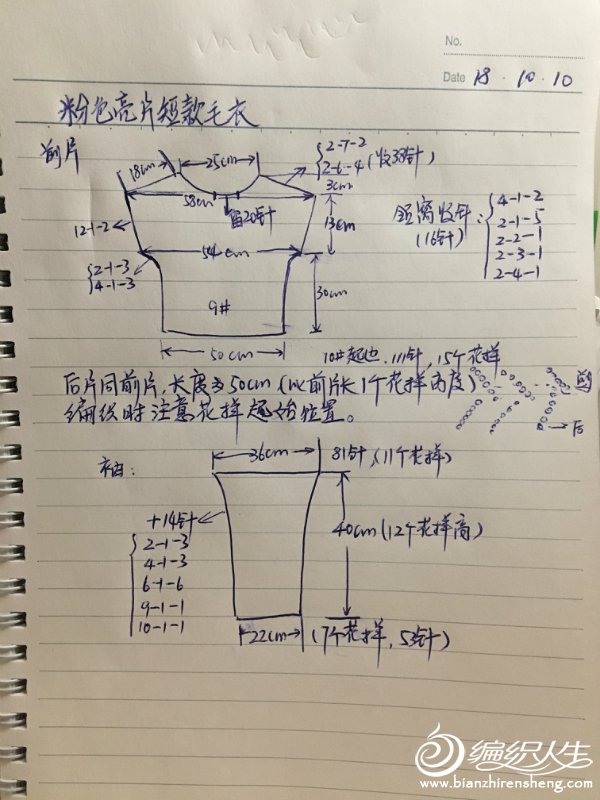 No.
Date 18 . 10 . 10
粉色亮片短款毛衣
前片
18cm
25cm
2-7-2
2-6-4 (收38针)
3cm
58cm
留20针
13cm
12-1-2
54cm
2-1-3
4-1-3
30cm
9#
50cm
距离收针:
(16针)
4-1-2
2-1-5
2-2-1
2-3-1
2-4-1
10#起边, 111针, 15个花样
后片同前片,长度为50cm(比前片长1个花样高度)
编织时注意花样起始位置。
前
后
袖:
36cm
81针 (11个花样)
+14针
2-1-3
4-1-3
6-1-6
9-1-1
10-1-1
40cm(12个花样高)
22cm
(7个花样, 53针)
编织人生
www.bianzhirensheng.com